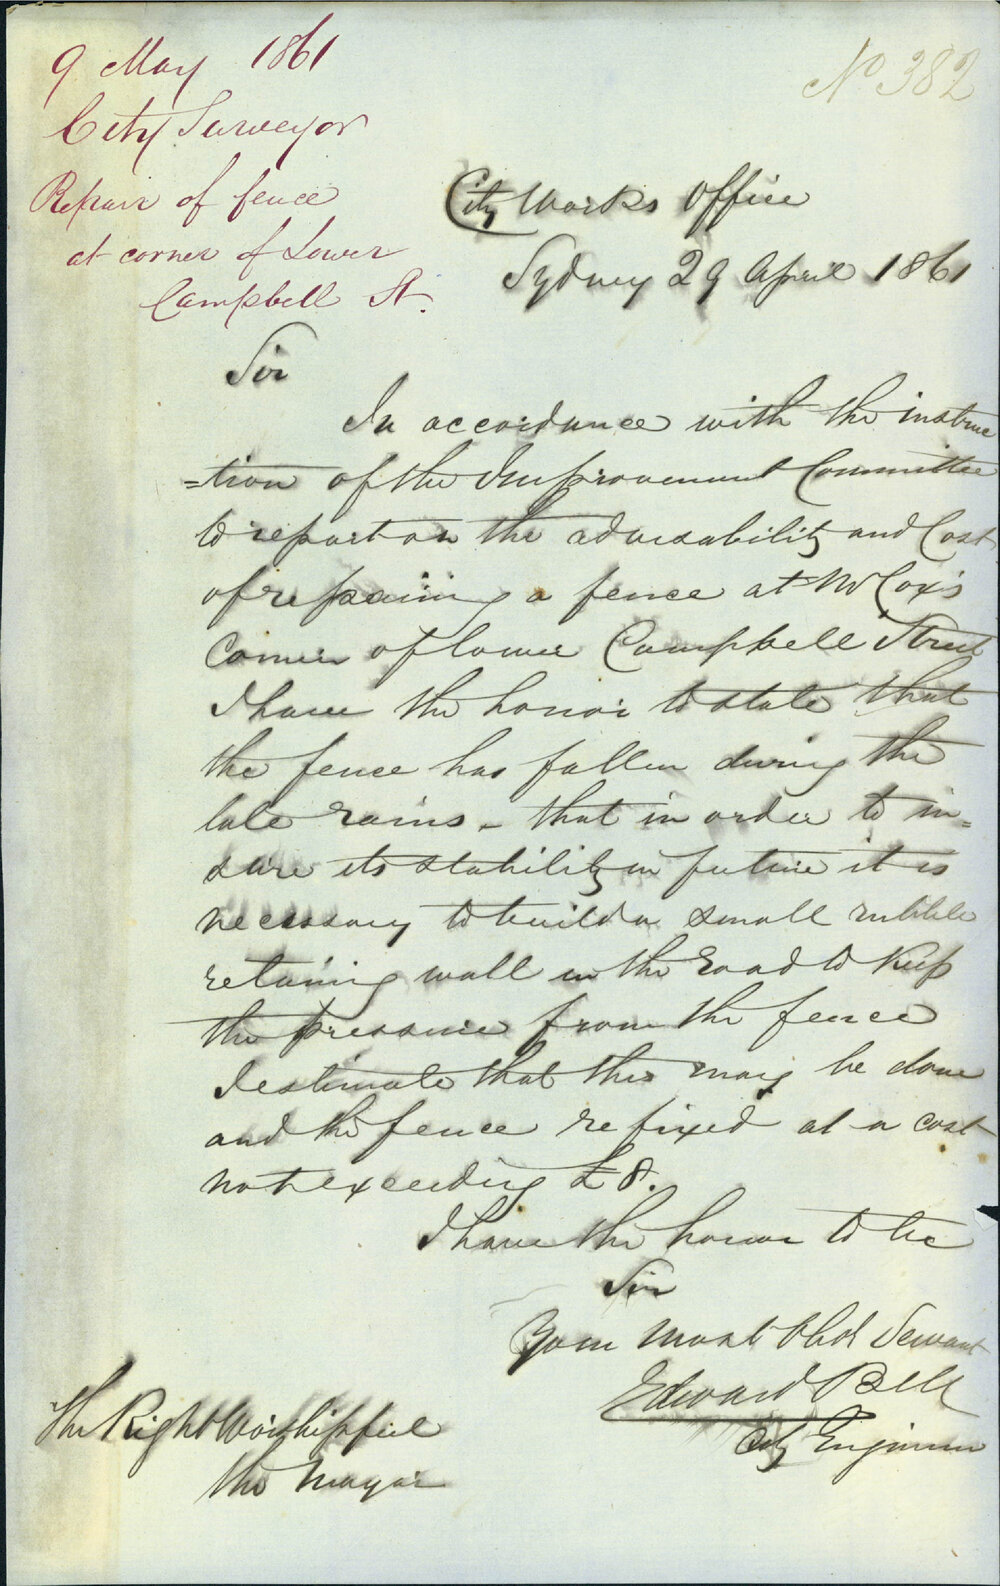 9 May 1861
City Surveyor
Repair of fence
at corner of Lower
Campbell St.
No 382
City Works Office
Sydney 29 April 1861
Sir
In accordance with the instruc
=tion of the Improvement Committee
to report on the advisability and Cost
of repairing a fence at Mr Cox's
Corner of lower Campbell Street
I have the honor to state that
the fence has fallen during the
late rains - that in order to in=
sure its stability in future it is
necessary to build a small rubble
retaining wall in the road to keep
the pressure from the fence
I estimate that this may be done
and the fence refixed at a cost
not exceeding £8.
I have the honor to be
Sir
Your Most Obdt Servant
Edward Bell
City Engineer
The Right Worshipful
the Mayor